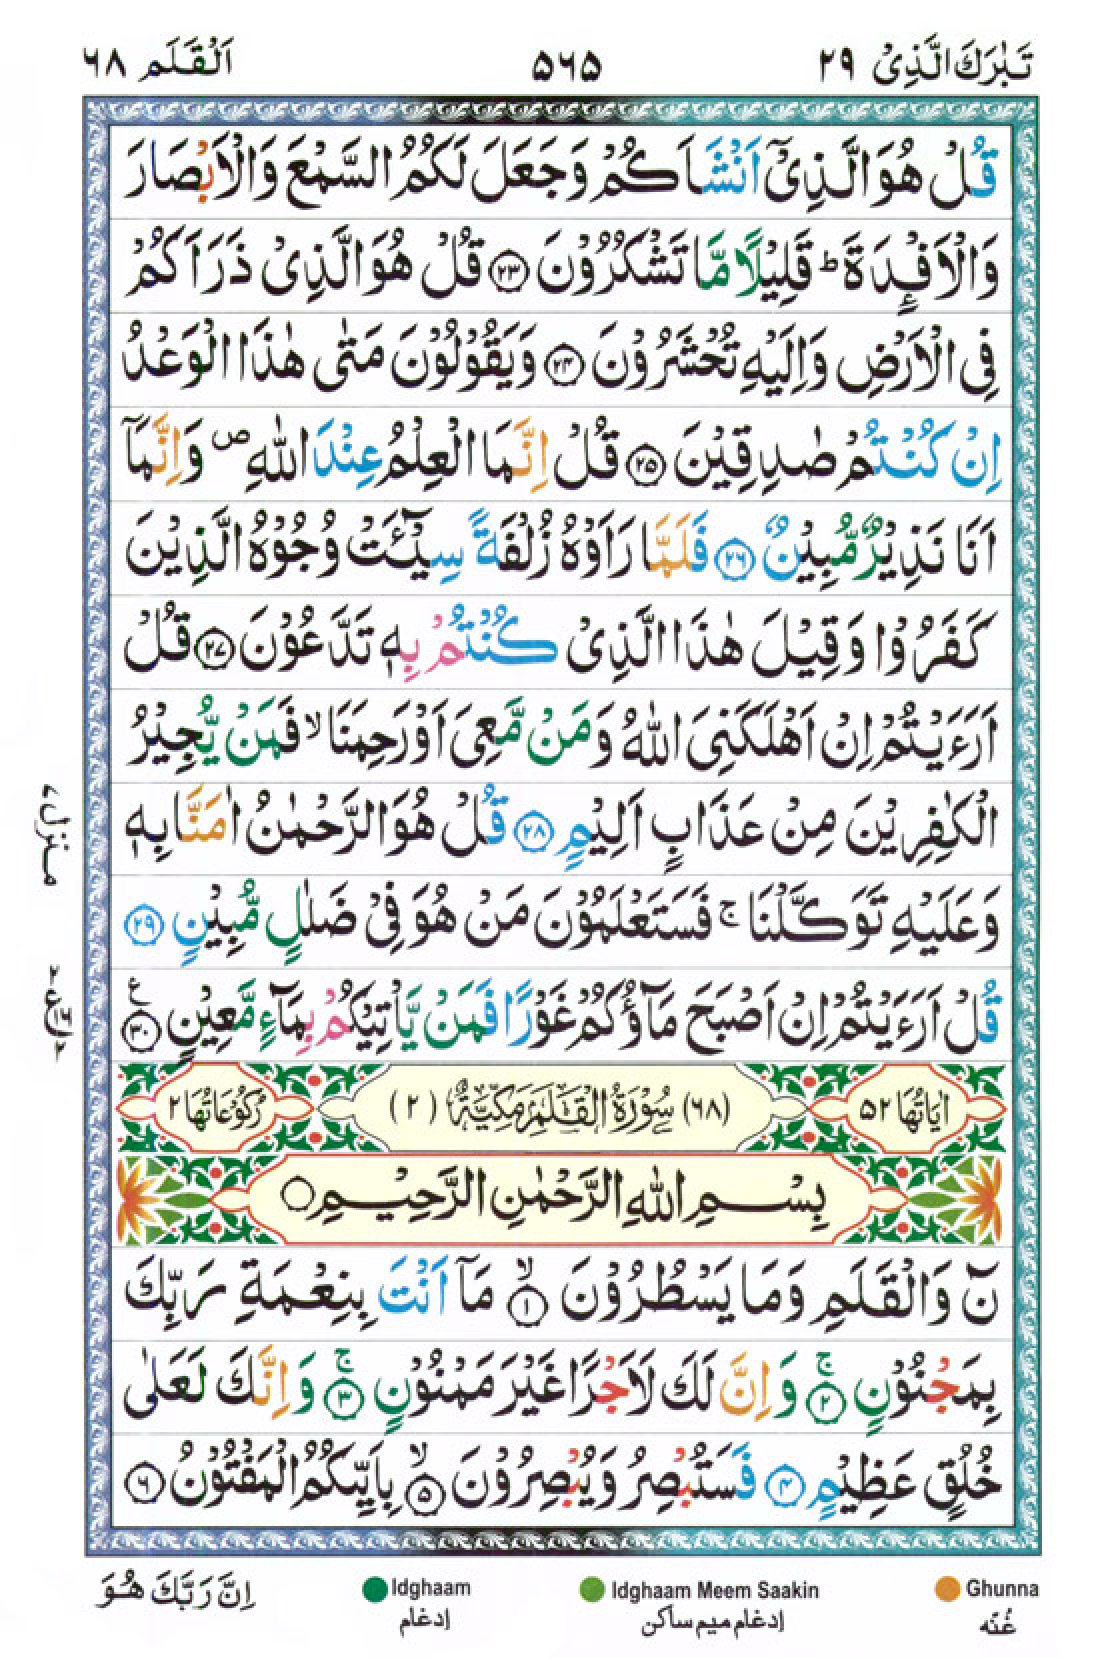 تَبٰرَكَ الَّذِىْ ٢٩ ٥٦٥ اَلْقَلَم ٦٨
قُلْ هُوَ الَّذِىْٓ اَنْشَاَكُمْ وَجَعَلَ لَكُمُ السَّمْعَ وَالْاَبْصَارَ
وَالْاَفْـِٕدَةَ ؕ قَلِيْلًا مَّا تَشْكُرُوْنَ ﴿٢٣﴾ قُلْ هُوَ الَّذِىْ ذَرَاَكُمْ
فِى الْاَرْضِ وَاِلَيْهِ تُحْشَرُوْنَ ﴿٢٤﴾ وَيَقُوْلُوْنَ مَتٰى هٰذَا الْوَعْدُ
اِنْ كُنْتُمْ صٰدِقِيْنَ ﴿٢٥﴾ قُلْ اِنَّمَا الْعِلْمُ عِنْدَ اللّٰهِ ص وَاِنَّمَاۤ
اَنَا نَذِيْرٌ مُّبِيْنٌ ﴿٢٦﴾ فَلَمَّا رَاَوْهُ زُلْفَةً سِيْٓـَٔتْ وُجُوْهُ الَّذِيْنَ
كَفَرُوْا وَقِيْلَ هٰذَا الَّذِىْ كُنْتُمْ بِهٖ تَدَّعُوْنَ ﴿٢٧﴾ قُلْ
اَرَءَيْتُمْ اِنْ اَهْلَكَنِىَ اللّٰهُ وَمَنْ مَّعِىَ اَوْ رَحِمَنَا ۙ فَمَنْ يُّجِيْرُ
الْكٰفِرِيْنَ مِنْ عَذَابٍ اَلِيْمٍ ﴿٢٨﴾ قُلْ هُوَ الرَّحْمٰنُ اٰمَنَّا بِهٖ
وَعَلَيْهِ تَوَكَّلْنَا ۚ فَسَتَعْلَمُوْنَ مَنْ هُوَ فِىْ ضَلٰلٍ مُّبِيْنٍ ﴿٢٩﴾
قُلْ اَرَءَيْتُمْ اِنْ اَصْبَحَ مَآؤُكُمْ غَوْرًا فَمَنْ يَّاْتِيْكُمْ بِمَآءٍ مَّعِيْنٍ ﴿٣٠﴾ ع
اٰيَاتُهَا ٥٢ (٦٨) سُوْرَةُ الْقَلَمِ مَكِّيَّةٌ (٢) رُكُوْعَاتُهَا ٢
بِسْمِ اللّٰهِ الرَّحْمٰنِ الرَّحِيْمِ
نٓ وَالْقَلَمِ وَمَا يَسْطُرُوْنَ ۙ﴿١﴾ مَآ اَنْتَ بِنِعْمَةِ رَبِّكَ
بِمَجْنُوْنٍ ۚ﴿٢﴾ وَاِنَّ لَكَ لَاَجْرًا غَيْرَ مَمْنُوْنٍ ۚ﴿٣﴾ وَاِنَّكَ لَعَلٰى
خُلُقٍ عَظِيْمٍ ﴿٤﴾ فَسَتُبْصِرُ وَيُبْصِرُوْنَ ۙ﴿٥﴾ بِاَيِّكُمُ الْمَفْتُوْنُ ﴿٦﴾
منزل ٧
اِنَّ رَبَّكَ هُوَ
Idghaam
إدغام
Idghaam Meem Saakin
إدغام ميم ساكن
Ghunna
غُنّه